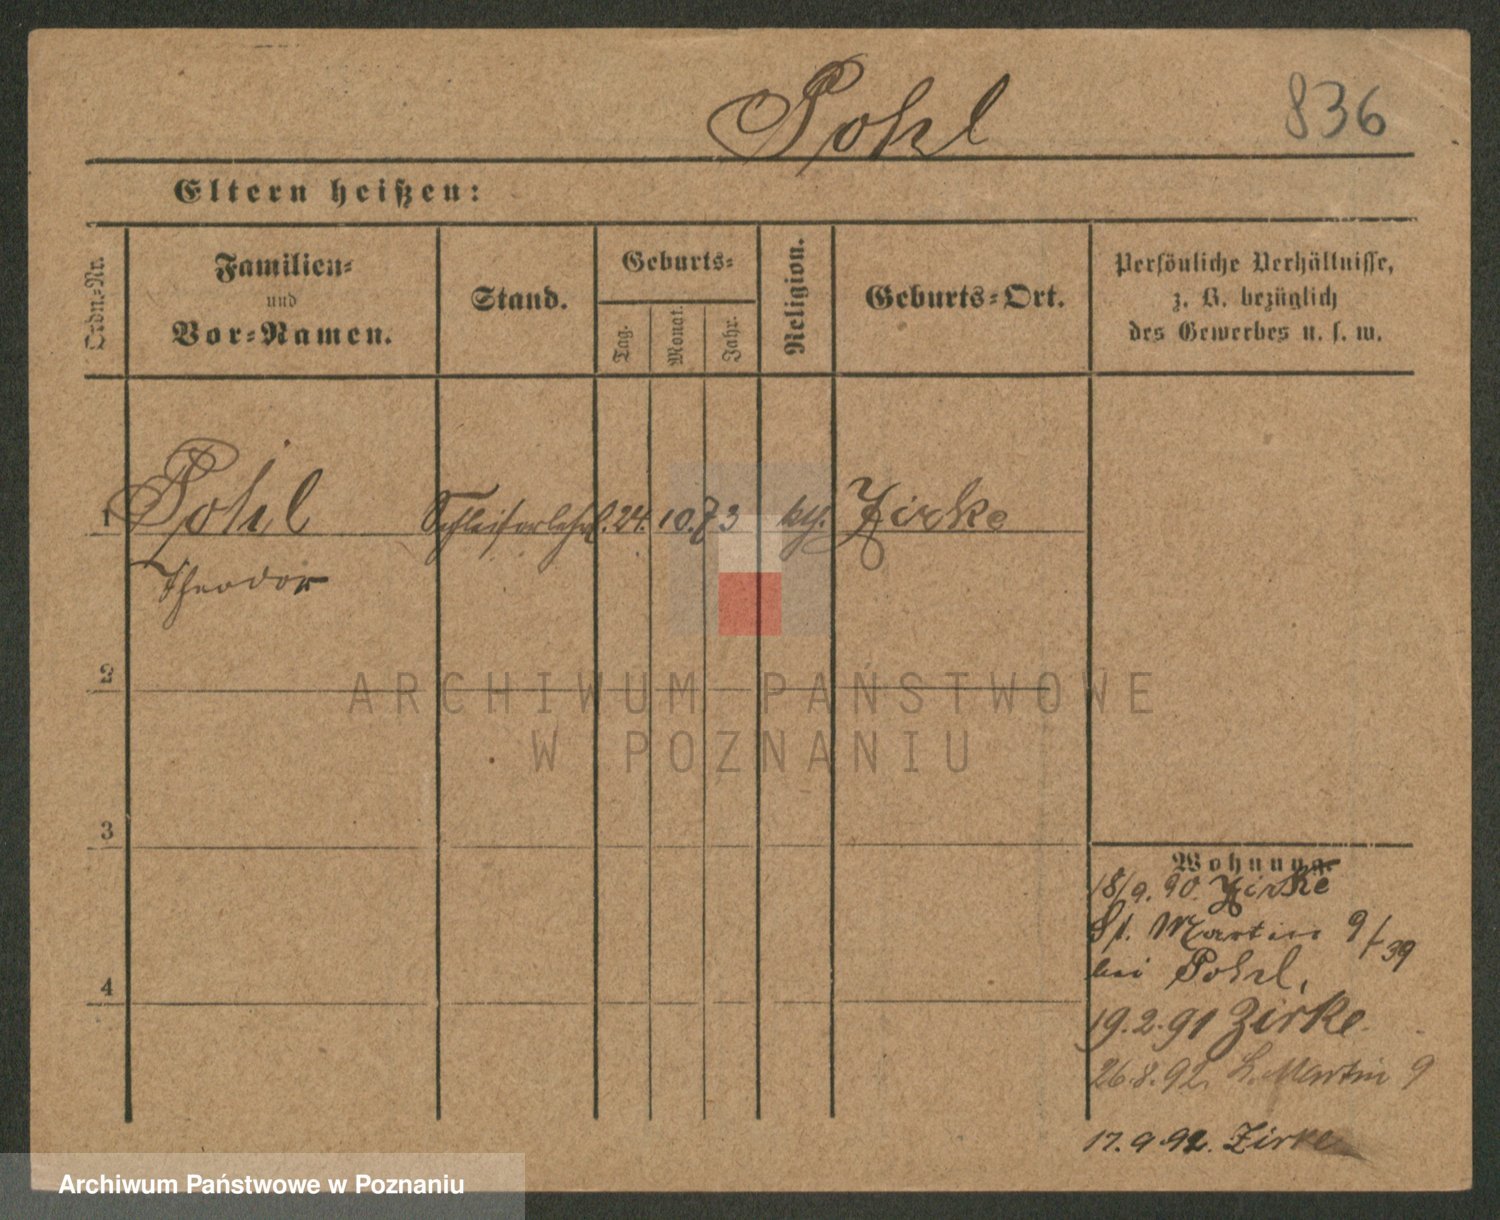 Pohl
836
Eltern heißen:
Ordn.-Nr.
Familien-
und
Vor-Namen.
Stand.
Geburts-
Tag.
Monat.
Jahr.
Religion.
Geburts-Ort.
Persönliche Verhältnisse,
z. B. bezüglich
des Gewerbes u. s. w.
1 Pohl Schleiferlehrl. 24. 10. 73 kth. Zirke
Theodor
2
3
4
Wohnung.
18/9. 90. Zirke
St. Martin 9/39
bei Pohl,
19. 2. 91 Zirke.
26. 8. 92. St. Martin 9
17. 9. 92. Zirke
ARCHIWUM PAŃSTWOWE
W POZNANIU
Archiwum Państwowe w Poznaniu